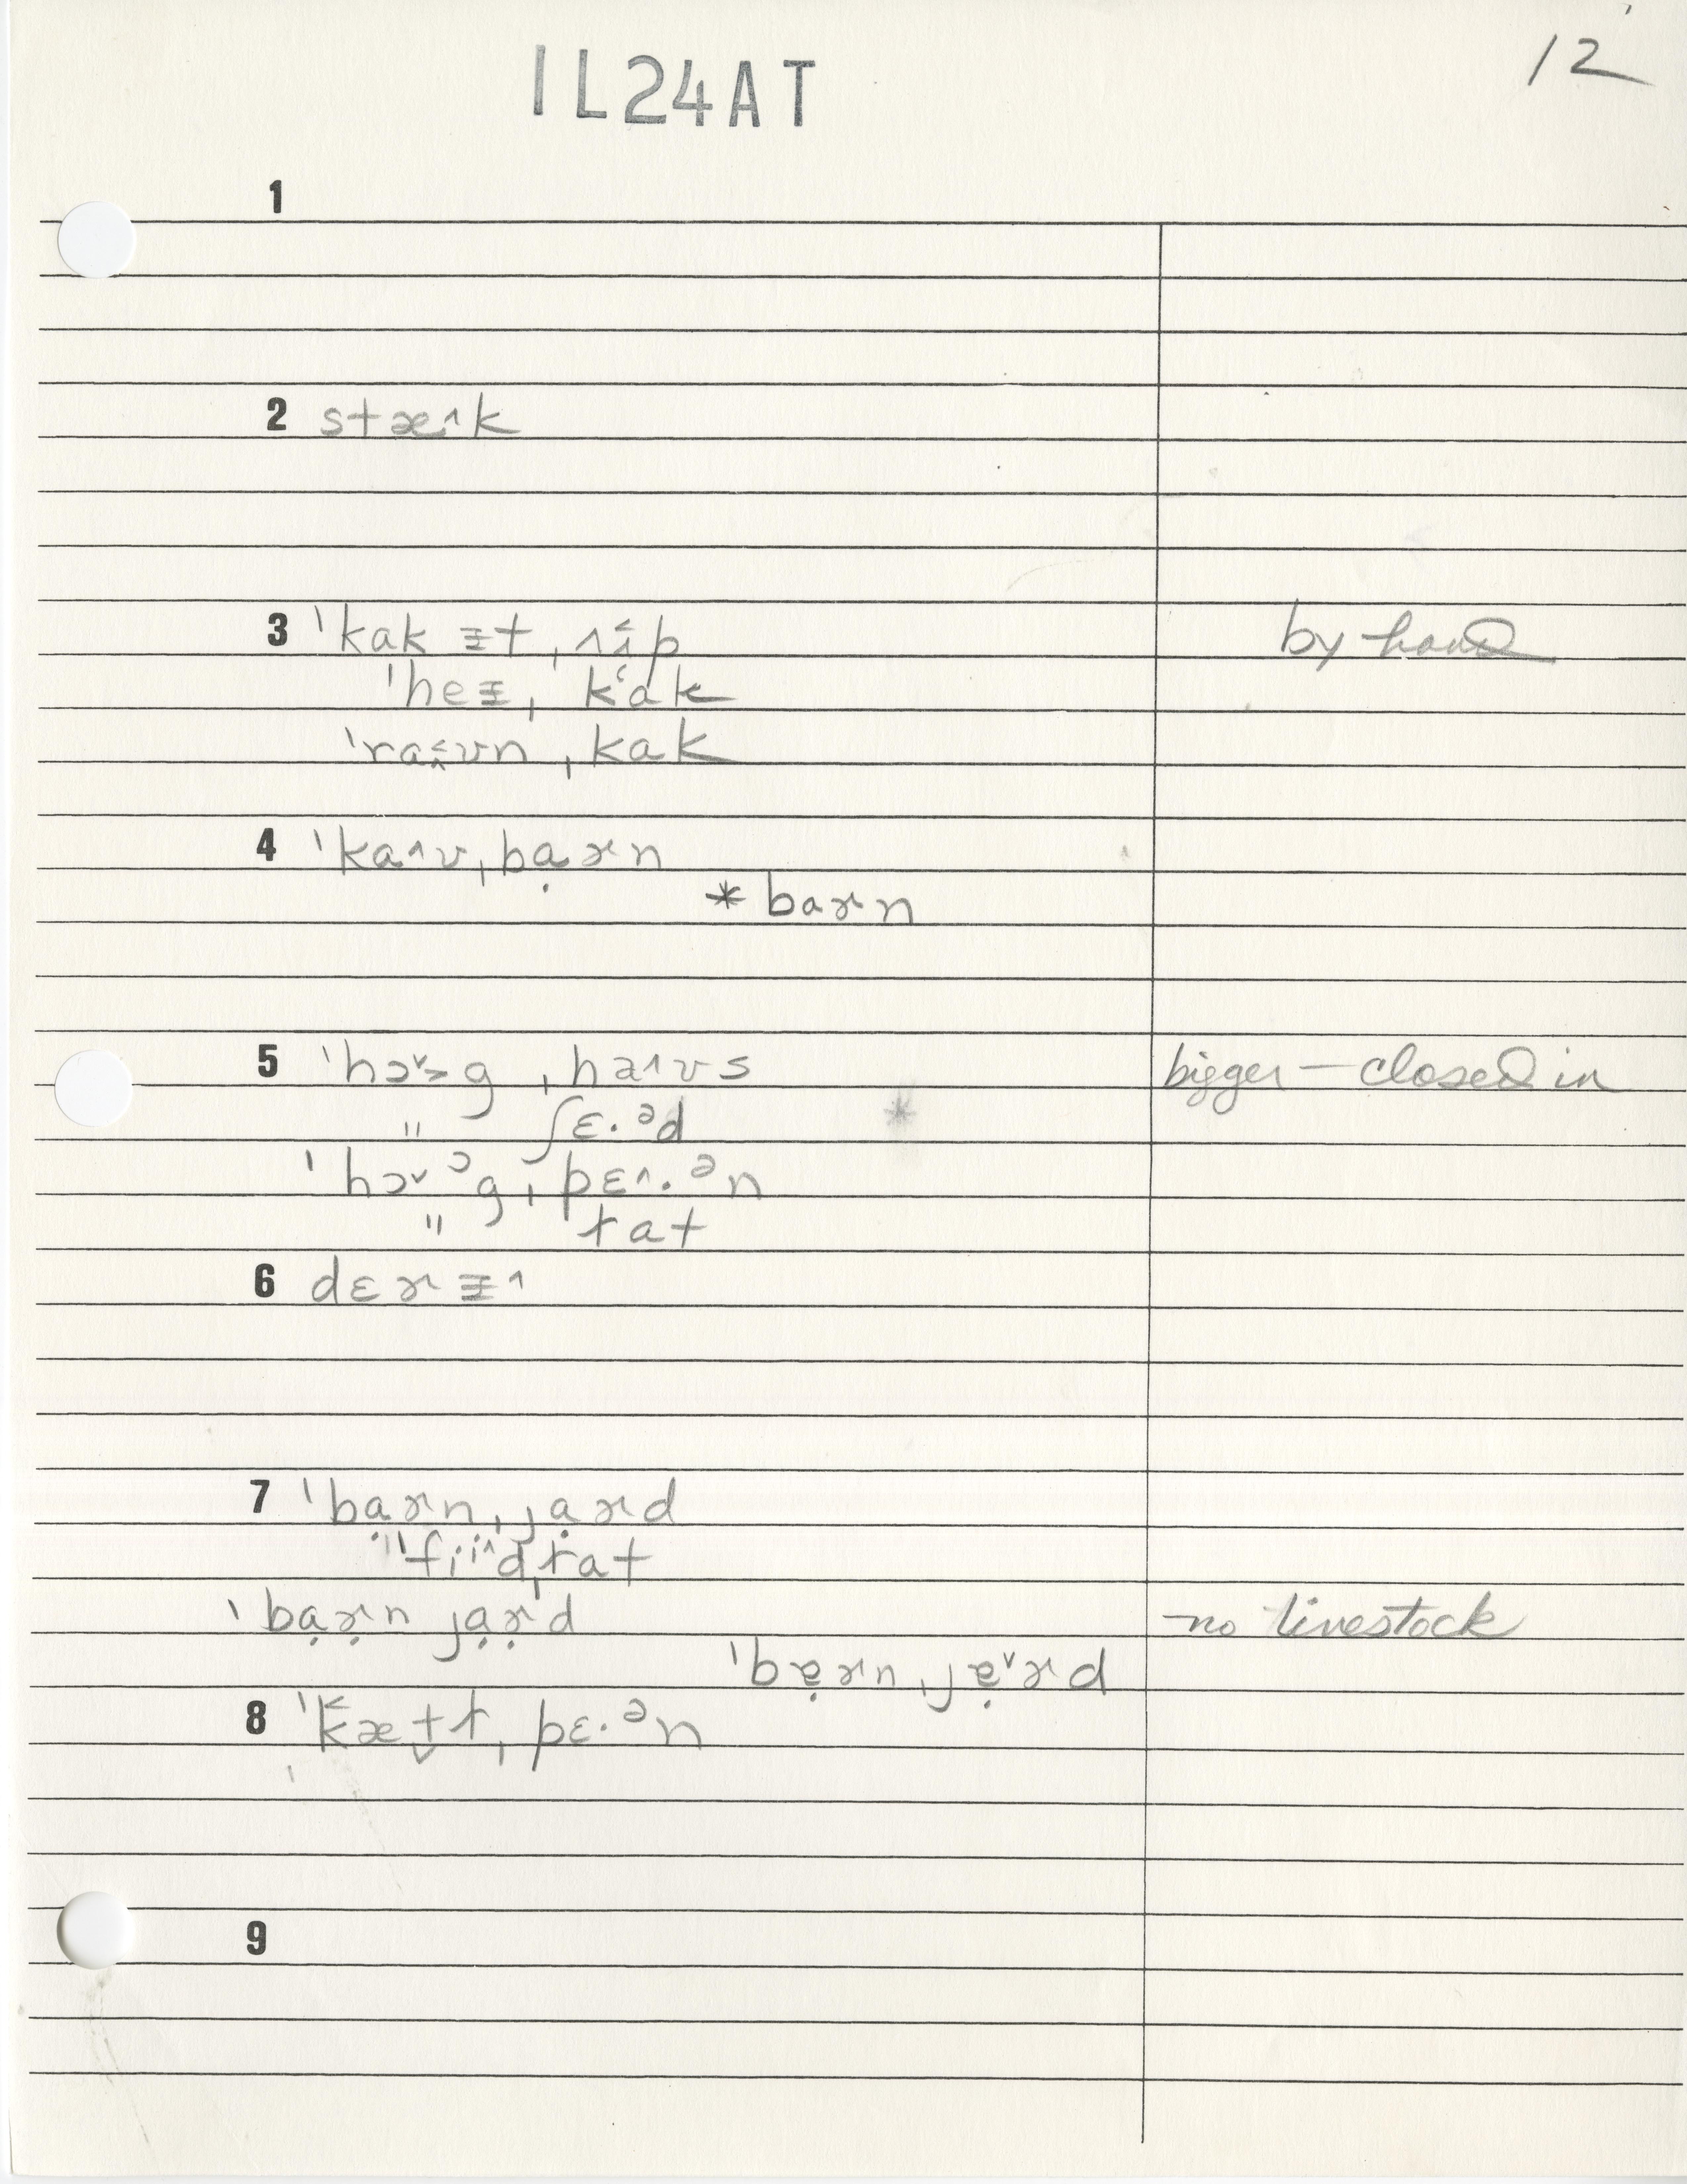 12
IL24AT
1
2 stæ˄k
3 ˈkak ᵻt ˌʌi˂p by hand
ˈheᵻ ˌkʻak
ˈra˂ʊn ˌkak
4 ˈka˄ʊ ˌbạɚn
* baɚn
5 ˈhɔ˅˃g ˌha˄ʊs bigger — closed in
" ʃɛ·ᵊd
ˈhɔ˅ᵓg ˌpɛ˄·ᵊn
" ɫat
6 dɛɚᵻ˄
7 ˈbạɚn ˌjạɚd
ˈfiːi˄d ˌɫat
ˈbạɚ̣n jạɚ̣d no livestock
ˈbɐ̣ɚn ˌjɐ̣˅ɚd
8 ˈkæt̬ɫ ˌpɛ·ᵊn
9